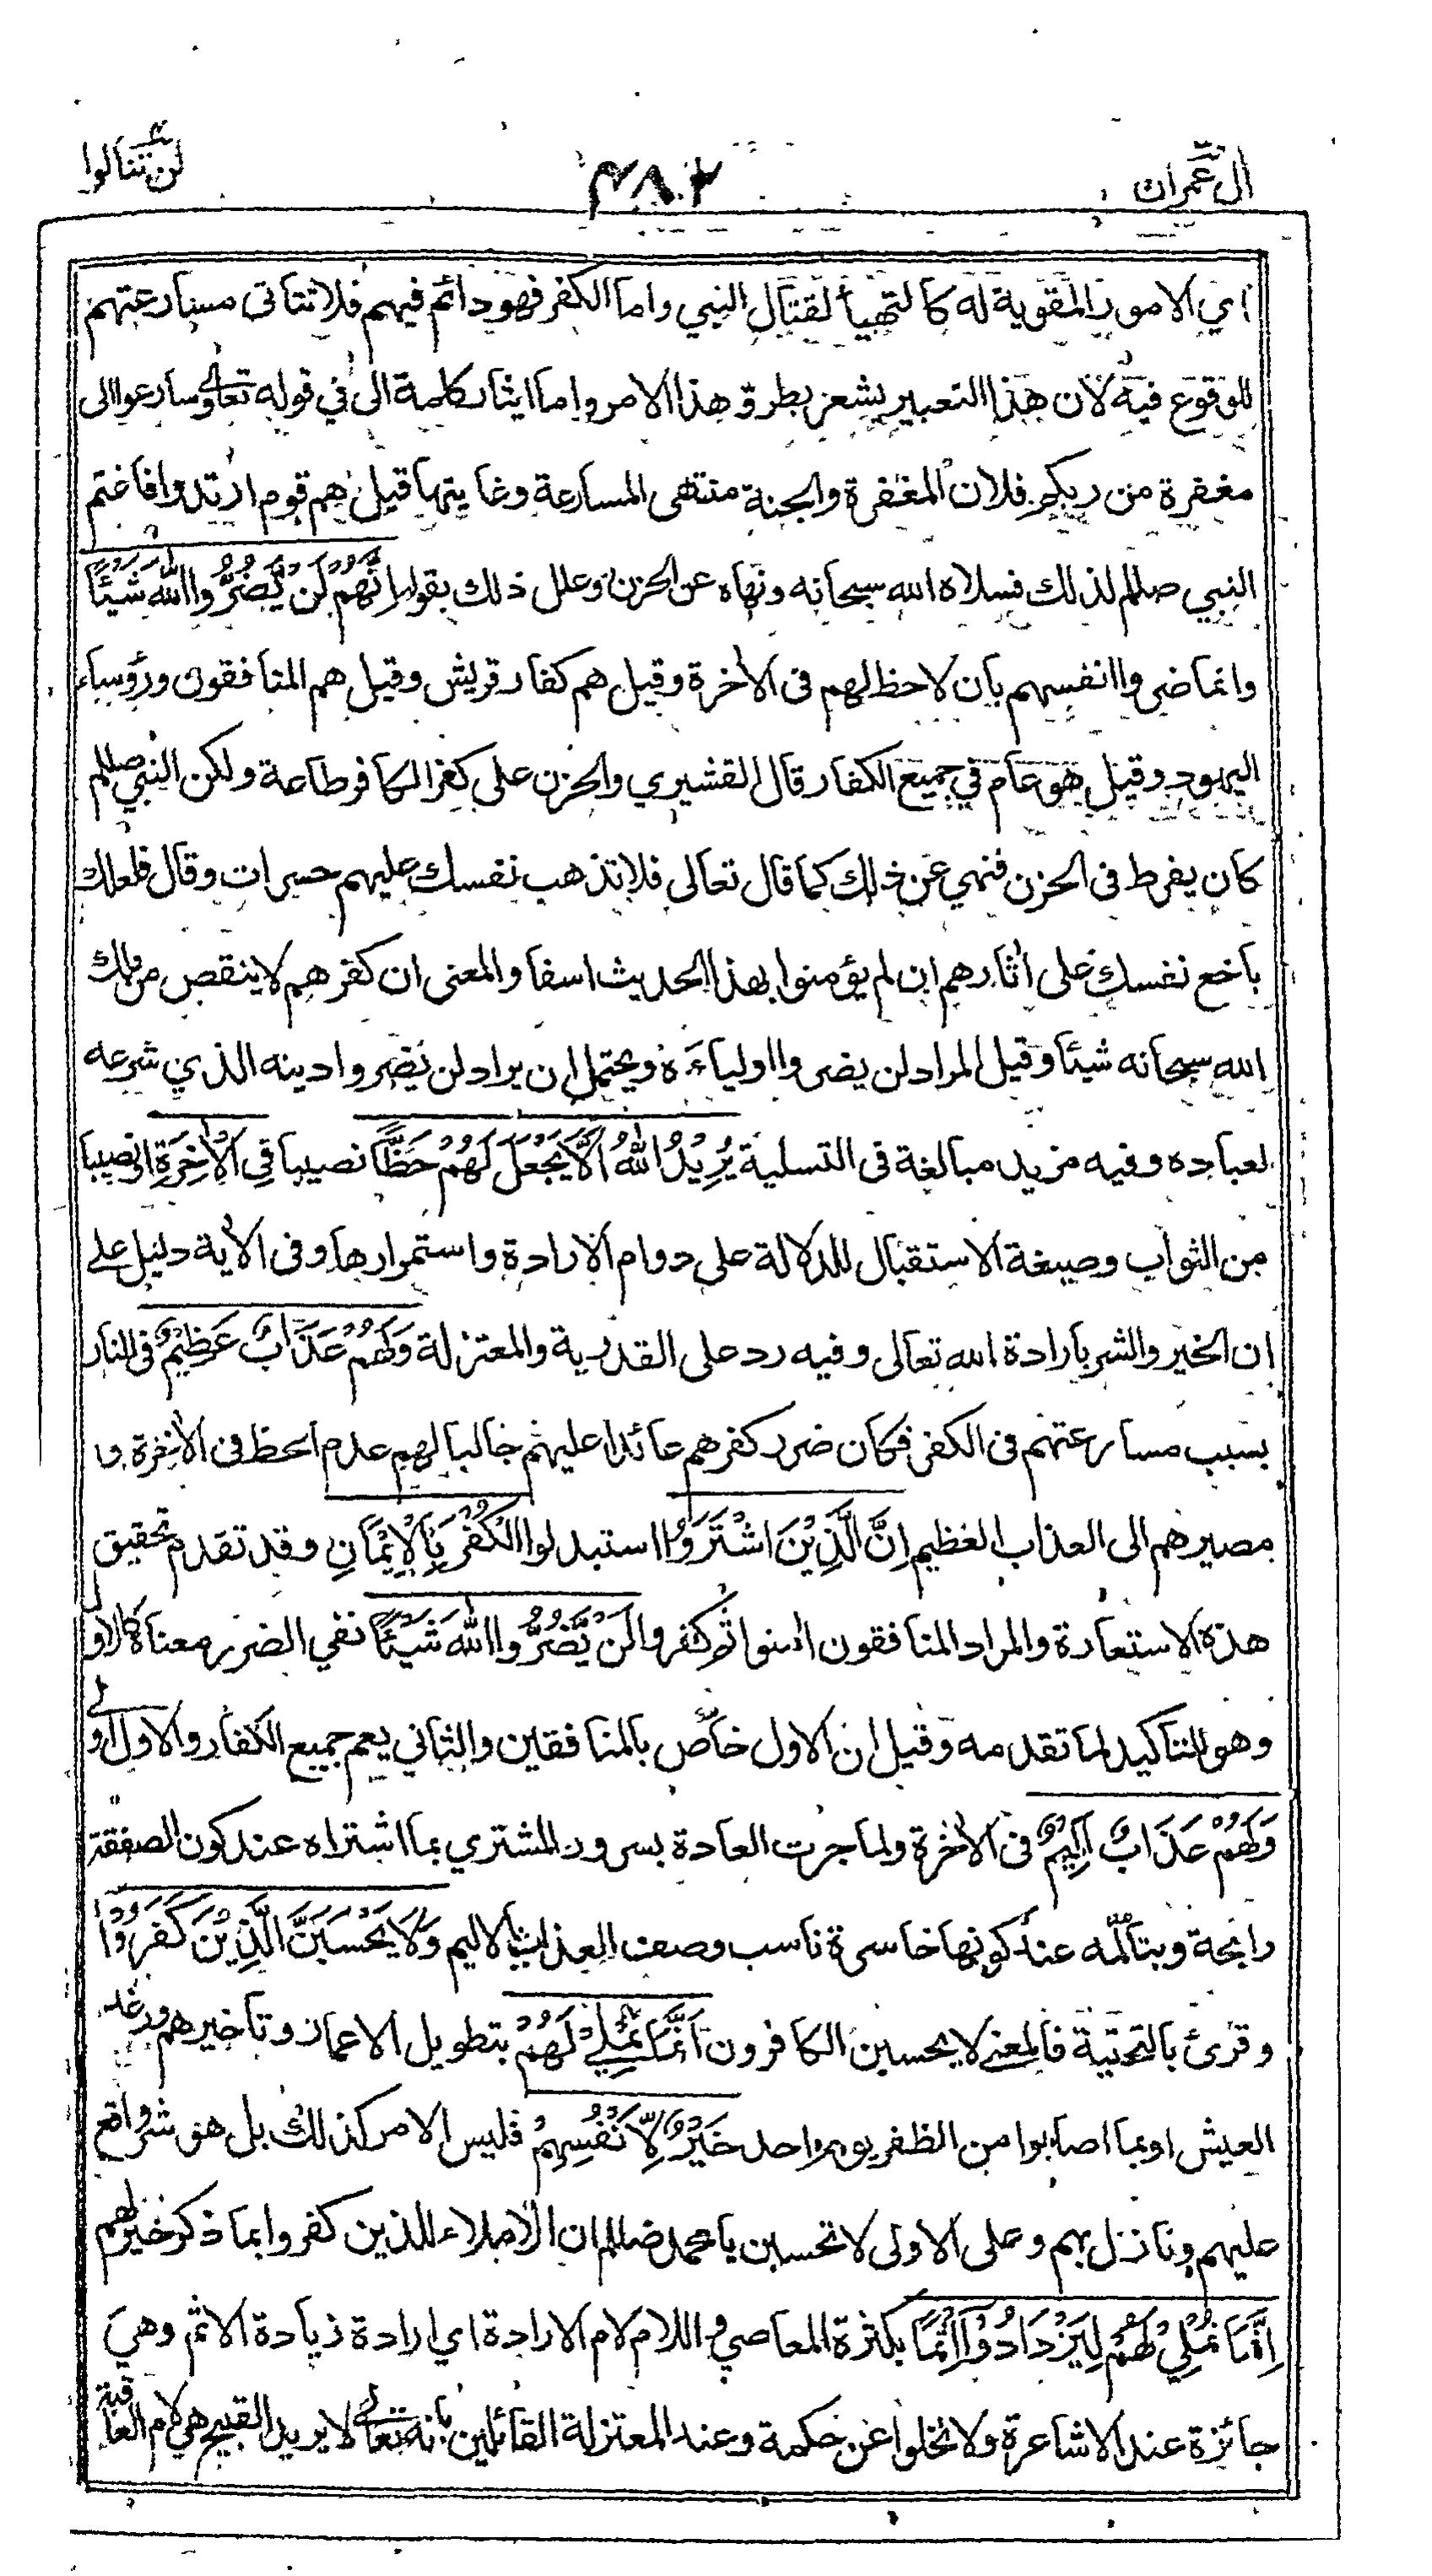 ال عمران
٤٨٢
لن تنالوا
اي الامور المقوية له كالتهيأ لقتال النبي واما الكفر فهو دائم فيهم فلا تتاتى مسارعتهم
للوقوع فيه لان هذا التعبير يشعر بطروّ هذا الامر واما ايثار كلمة الى في قوله تعالى وسارعوا الى
مغفرة من ربكم فلان المغفرة والجنة منتهى المسارعة وغايتها قيل هم قوم ارتدوا فاغتم
النبي صللم لذلك فسلاه الله سبحانه ونهاه عن الحزن وعلل ذلك بقوله اِنَّهُمْ لَنْ يَّضُرُّوا اللّٰهَ شَيْئًا
وانما ضروا انفسهم بان لا حظ لهم فى الاخرة وقيل هم كفار قريش وقيل هم المنافقون ورؤساء
اليهود وقيل هو عام في جميع الكفار قال القشيري والحزن على كفر الكافر طاعة ولكن النبي صللم
كان يفرط فى الحزن فنهي عن ذلك كما قال تعالى فلا تذهب نفسك عليهم حسرات وقال فلعلك
باخع نفسك على اثارهم ان لم يؤمنوا بهذا الحديث اسفا والمعنى ان كفرهم لا ينقص من ملك
الله سبحانه شيئا وقيل المراد لن يضروا اولياءه ويحتمل ان يراد لن يضروا دينه الذي شرعه
لعباده وفيه مزيد مبالغة فى التسلية يُرِيْدُ اللّٰهُ اَلَّا يَجْعَلَ لَهُمْ حَظًّا نصيبا فِى الْاٰخِرَةِ اي نصيبا
من الثواب وصيغة الاستقبال للدلالة على دوام الارادة واستمرارها وفى الاية دليل على
ان الخير والشر بارادة الله تعالى وفيه رد على القدرية والمعتزلة وَلَهُمْ عَذَابٌ عَظِيْمٌ فى النار
بسبب مسارعتهم فى الكفر فكان ضرر كفرهم عائدا عليهم جالبا لهم عدم الحظ فى الاخرة و
مصيرهم الى العذاب العظيم اِنَّ الَّذِيْنَ اشْتَرَوُا استبدلوا الْكُفْرَ بِالْاِيْمَانِ وقد تقدم تحقيق
هذه الاستعارة والمراد المنافقون امنوا ثم كفروا لَنْ يَّضُرُّوا اللّٰهَ شَيْئًا نفي الضرر معناه كالاول
وهو للتاكيد لما تقدمه وقيل ان الاول خاص بالمنافقين والثاني يعم جميع الكفار والاول اولى
وَلَهُمْ عَذَابٌ اَلِيْمٌ فى الاخرة ولما جرت العادة بسرور المشتري بما اشتراه عند كون الصفقة
رابحة وبتالّمه عند كونها خاسرة ناسب وصف العذاب بالاليم وَلَا يَحْسَبَنَّ الَّذِيْنَ كَفَرُوْا
وقرئ بالتحتية فالمعنى لا يحسبن الكافرون اَنَّمَا نُمْلِيْ لَهُمْ بتطويل الاعمار وتاخيرهم ورغد
العيش او بما اصابوا من الظفر يوم احد خَيْرٌ لِّاَنْفُسِهِمْ فليس الامر كذلك بل هو شر واقع
عليهم ونازل بهم وعلى الاولى لا تحسبن يا محمد صللم ان الاملاء للذين كفروا بما ذكر خير لهم
اِنَّمَا نُمْلِيْ لَهُمْ لِيَزْدَادُوْا اِثْمًا بكثرة المعاصي واللام لام الارادة اي ارادة زيادة الاثم وهي
جائزة عند الاشاعرة ولا تخلوا عن حكمة وعند المعتزلة القائلين بانه تعالى لا يريد القبيح هي لام العاقبة